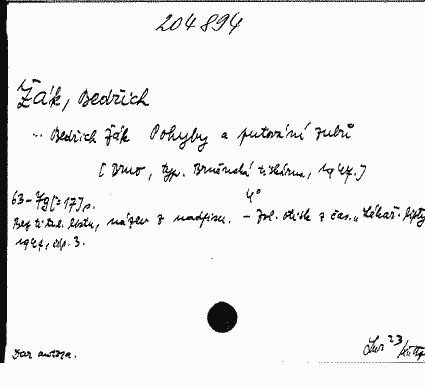 204894
Žák, Bedřich
... Bedřich Žák Pohyby a putování zubů
[Brno, typ. Brněnská tiskárna, 1947.]
63-79 [=17] s. 4°
Bez tit. listu, název z nadpisu. - Zvl. otisk z čas. „Lékař. listy
1947, čís. 3.
Dar autora.
23